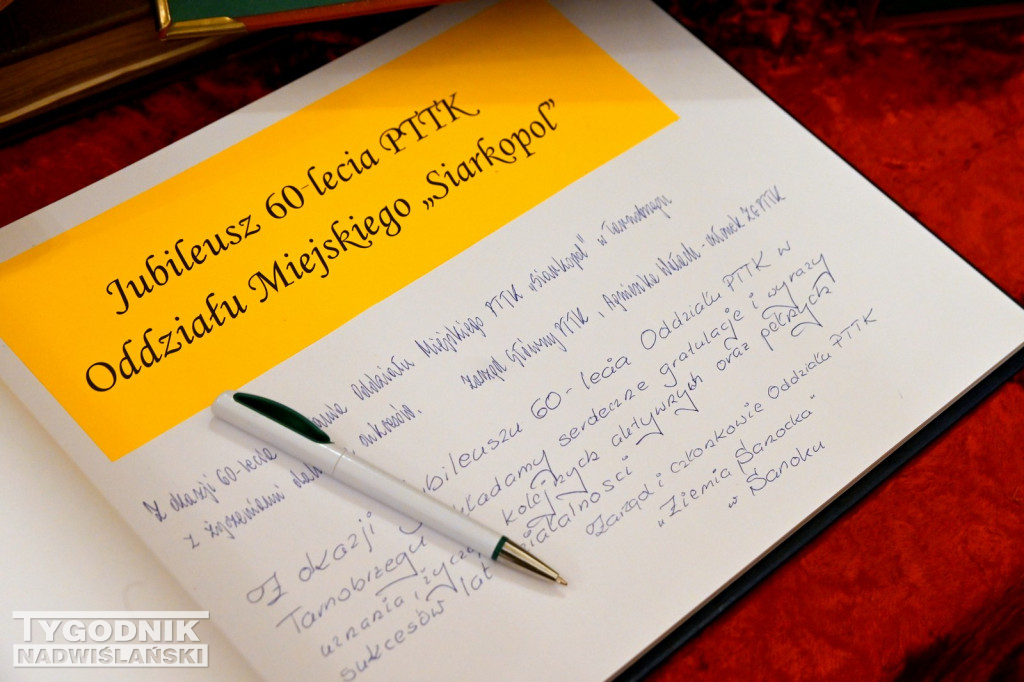 Jubileusz 60-lecia PTTK
Oddziału Miejskiego „Siarkopol”
Z okazji 60-lecia Oddziału Miejskiego PTTK „Siarkopol” w Tarnobrzegu
z życzeniami sukcesów.
Zarząd Główny PTTK, Agnieszka - członek ZG PTTK
Z okazji Jubileuszu 60-lecia Oddziału PTTK w
Tarnobrzegu składamy serdeczne gratulacje i wyrazy
uznania i życzymy kolejnych aktywnych oraz pełnych
sukcesów lat działalności
Zarząd i członkowie Oddziału PTTK
„Ziemia Sanocka”
w Sanoku
TYGODNIK
NADWIŚLAŃSKI